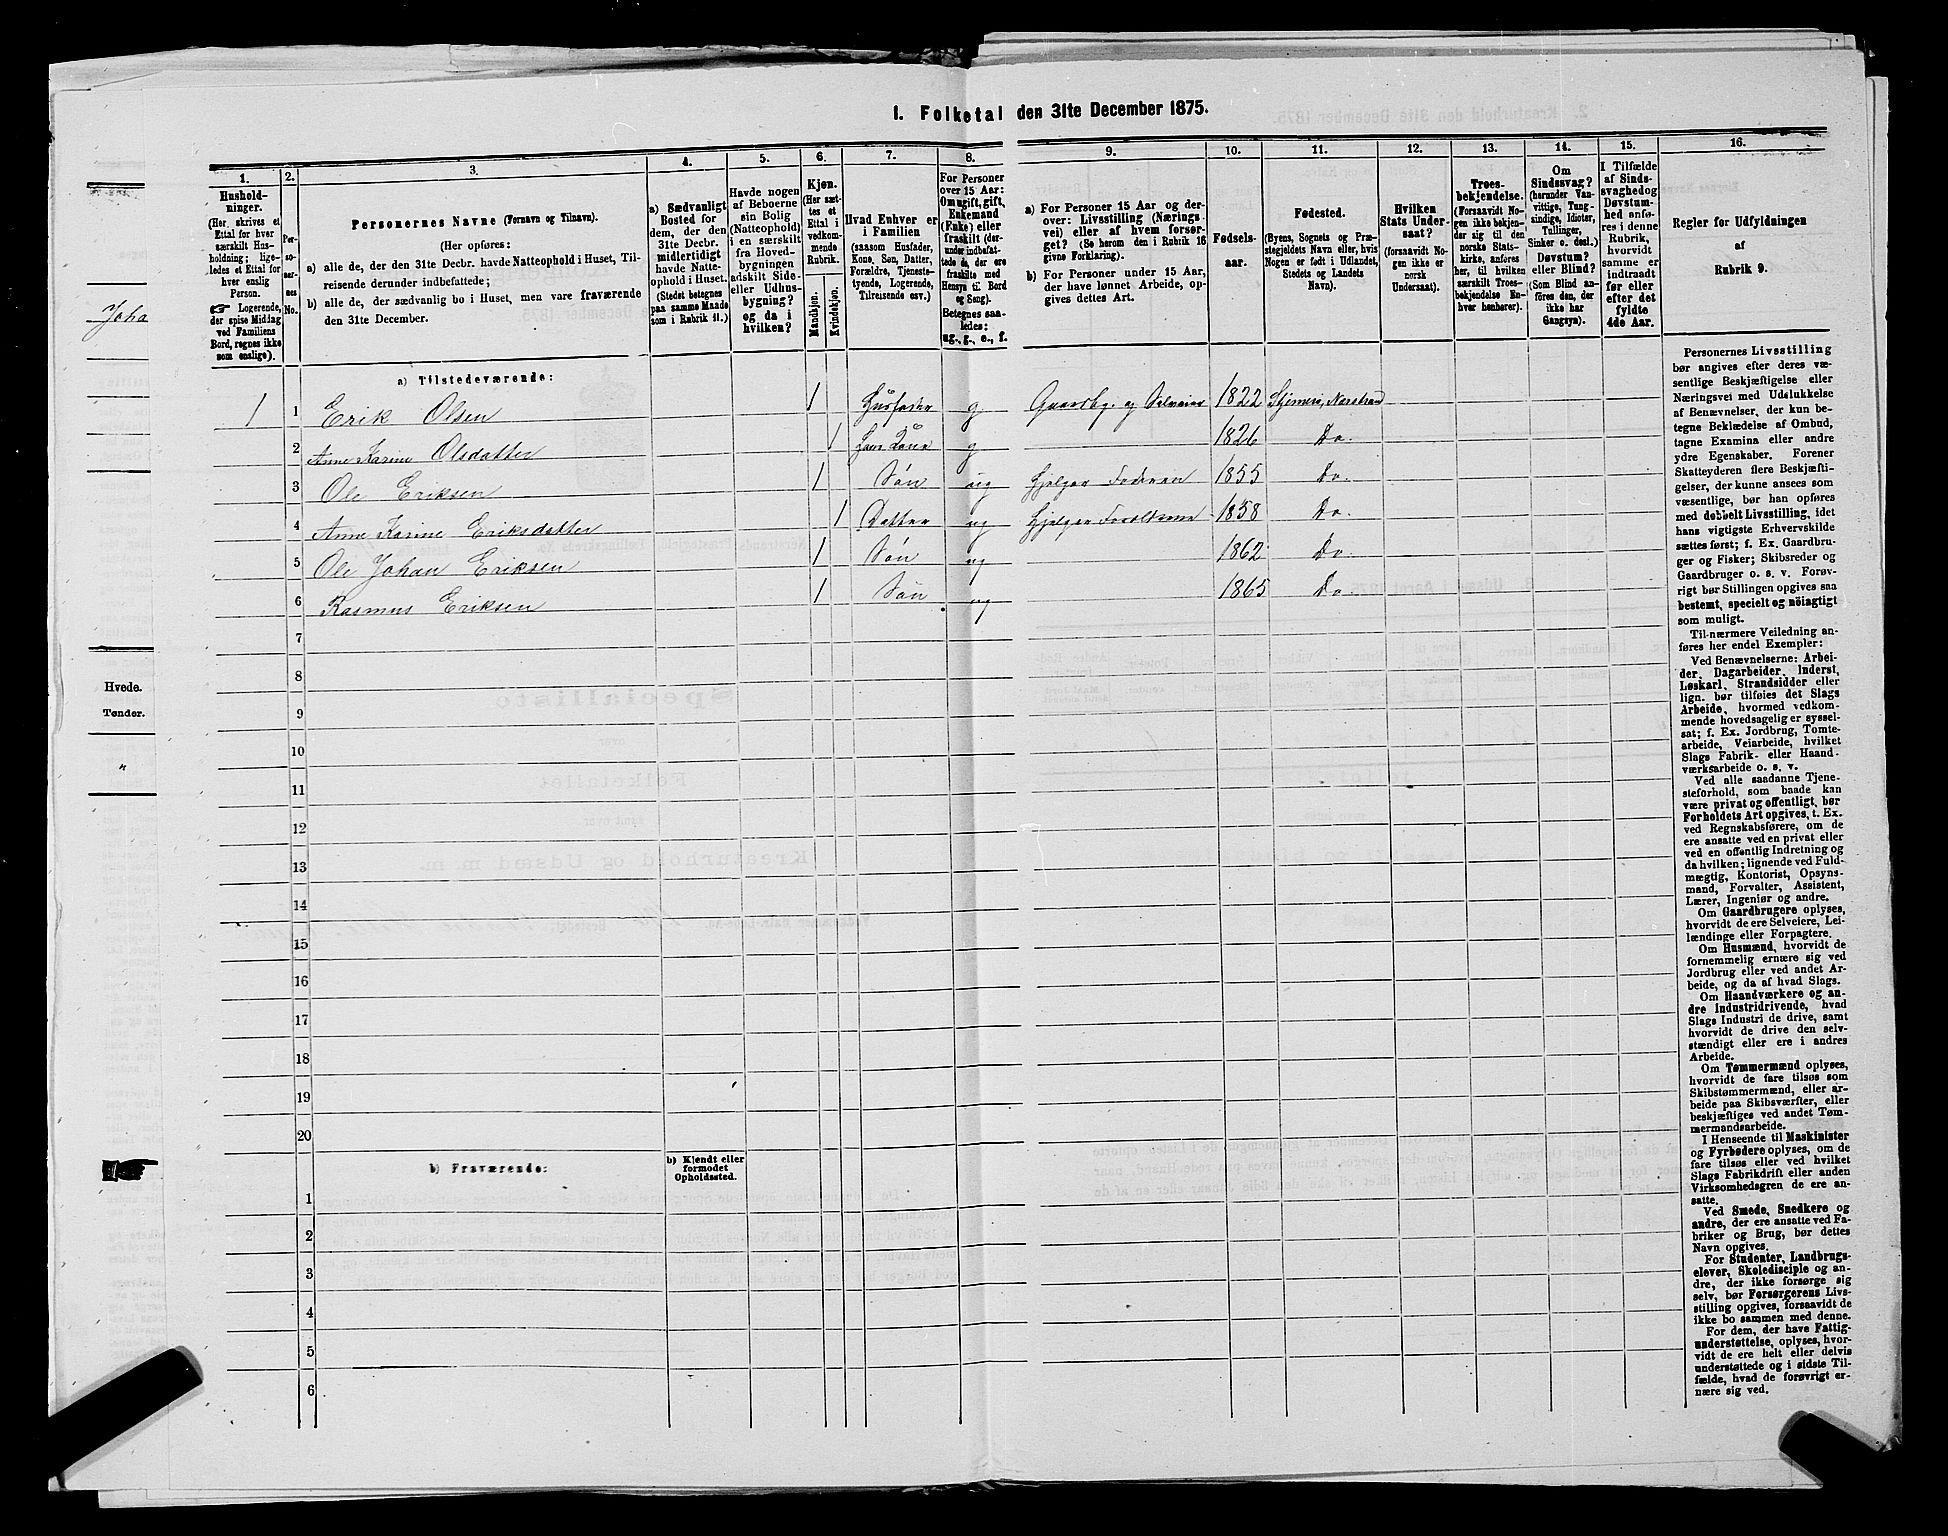 I. Folketal den 31te December 1875.
1.
Hushold-
ninger.
(Her skrives et
Ettal for hver
særskilt Hus-
holdning; lige-
ledes et Ettal for
hver enslig
Person.
☞ Logerende,
der spise Middag
ved Familiens
Bord, regnes ikke
som enslige).
2.
Per-
so-
ner-
nes
No.
3.
Personernes Navne (Fornavn og Tilnavn).
(Her opføres:
a) alle de, der den 31te Decbr. havde Natteophold i Huset, Til-
reisende derunder indbefattede;
b) alle de, der sædvanlig bo i Huset, men vare fraværende
den 31te December.
4.
a) Sædvanligt
Bosted for
dem, der den
31te Decbr.
midlertidigt
havde Natte-
ophold i Huset.
(Stedet betegnes
paa samme Maade
som i Rubrik 11.)
5.
Havde nogen
af Beboerne
sin Bolig
(Natteophold)
i en særskilt
fra Hoved-
bygningen
adskilt Side-
eller Udhus-
bygning?
og da i
hvilken?
6.
Kjøn.
(Her sæt-
tes et
Ettal i
vedkom-
mende
Rubrik.
Mandkjøn.
Kvindekjøn.
7.
Hvad Enhver er
i Familien
(saasom Husfader,
Kone, Søn, Datter,
Forældre, Tjeneste-
tyende, Logerende,
Tilreisende osv.)
8.
For Personer
over 15 Aar:
Om ugift, gift,
Enkemand
(Enke) eller
fraskilt (der-
under indbefat-
tede de, der ere
fraskilte med
Hensyn til Bord
og Seng).
Betegnes saa-
ledes:
ug., g., e., f.
9.
a) For Personer 15 Aar og der-
over: Livsstilling (Nærings-
vei) eller af hvem forsør-
get? (Se herom den i Rubrik 16
givne Forklaring).
b) For Personer under 15 Aar,
der have lønnet Arbeide, op-
gives dettes Art.
10.
Fødsels-
aar.
11.
Fødested.
(Byens, Sognets og Præ-
stegjeldets Navn eller, hvis
Nogen er født i Udlandet,
Stedets og Landets
Navn).
12.
Hvilken
Stats Under-
saat?
(forsaavidt No-
gen ikke er
norsk
Undersaat).
13.
Troes-
bekjendelse.
(Forsaavidt No-
gen ikke bekjen-
der sig til den
norske Stats-
kirke, anføres
her, til hvilken
særskilt Troes-
bekjendelse En-
hver henhører).
14.
Om
Sindssvag?
(herunder Van-
vittige, Tung-
sindige, Idioter,
Tullinger,
Sinker o. desl.)
Døvstum?
eller Blind?
(Som Blind an-
føres den, der
ikke har
Gangsyn).
15.
I Tilfælde
af Sinds-
svaghed og
Døvstum-
hed anfø-
res i denne
Rubrik,
hvorvidt
samme er
indtraadt
før eller
efter det
fyldte
4de Aar.
16.
Regler for Udfyldningen
af
Rubrik 9.
a) Tilstedeværende:
1 1 Erik Olsen 1 Husfader g Gaardbg. og Selveier 1822
2 Anne Karine Olsdatter 1 g 1826 Do.
3 Ole Eriksen 1 Søn ug Hjelper Faderen 1855 Do.
4 Anne Karine Eriksdatter 1 Datter ug Hjelper 1858 Do.
5 Ole Johan Eriksen 1 Søn ug 1862 Do
6 Rasmus Eriksen 1 Søn ug 1865 Do.
7
8
9
10
11
12
13
14
15
16
17
18
19
20
b) Fraværende:
b) Kjendt eller
formodet
Opholdssted.
1
2
3
4
5
6
Personernes Livsstilling
bør angives efter deres væ-
sentlige Beskjæftigelse eller
Næringsvei med Udslukkelse
af Benævnelser, der kun be-
tegne Beklædelse af Ombud,
tagne Examina eller andre
ydre Egenskaber. Forener
Skatteyderen flere Beskjæfti-
gelser, der kunne ansees som
væsentlige, bør han opføres
med dobbelt Livsstilling, idet
hans vigtigste Erhvervskilde
sættes først; f. Ex. Gaardbru-
ger og Fisker; Skibsreder og
Gaardbruger o. s. v. Forøv-
rigt bør Stillingen opgives saa
bestemt, specielt og nöiagtigt
som muligt.
Til nærmere Veiledning an-
føres her endel Exempler:
Ved Benævnelserne: Arbei-
der, Dagarbeider, Inderst,
Løskarl, Strandsidder eller
lign. bør tilføies det Slags
Arbeide, hvormed vedkom-
mende hovedsagelig er syssel-
sat; f. Ex. Jordbrug, Tomte-
arbeide, Veiarbeide, hvilket
Slags Fabrik- eller Haand-
værksarbeide o. s. v.
Ved alle saadanne Tjene-
steforhold, som baade kan
være privat og offentligt, bør
Forholdets Art opgives, t. Ex.
ved Regnskabsførere, om de
ere ansatte ved en privat eller
ved en offentlig Indretning og
da hvilken; lignende ved Fuld-
mægtig, Kontorist, Opsyns-
mand, Forvalter, Assistent,
Lærer, Ingeniør og andre.
Om Gaardbrugere oplyses,
hvorvidt de ere Selveiere, Lei-
lændinge eller Forpagtere.
Om Husmænd, hvorvidt de
fornemmelig ernære sig ved
Jordbrug eller ved andet Ar-
beide, og da af hvad Slags.
Om Haandværkere og an-
dre Industridrivende, hvad
Slags Industri de drive, samt
hvorvidt de drive den selv-
stændigt eller ere i andres
Arbeide.
Om Tømmermænd oplyses,
hvorvidt de fare tilsøs som
Skibstømmermænd, eller ar-
beide paa Skibsværfter, eller
beskjæftiges ved andet Tøm-
mermandsarbeide.
I Henseende til Maskinister
og Fyrbødere oplyses, om de
fare tilsøs eller ved hvilket
Slags Fabrikdrift eller anden
Virksomhedsgren de ere an-
satte.
Ved Smede, Snedkere og
andre, der ere ansatte ved Fa-
briker og Brug, bør dettes
Navn opgives.
For Studenter, Landbrugs-
elever, Skoledisciple og an-
dre, der ikke forsørge sig
selv, bør Forsørgerens Livs-
stilling opgives, forsaavidt de
ikke bo sammen med denne.
For dem, der have Fattig-
understøttelse, oplyses, hvor-
vidt de ere helt eller delvis
understøttede og i sidste Til-
fælde, hvad de forøvrigt er-
nære sig ved.
Joha
Hvede.
Tønder.
"